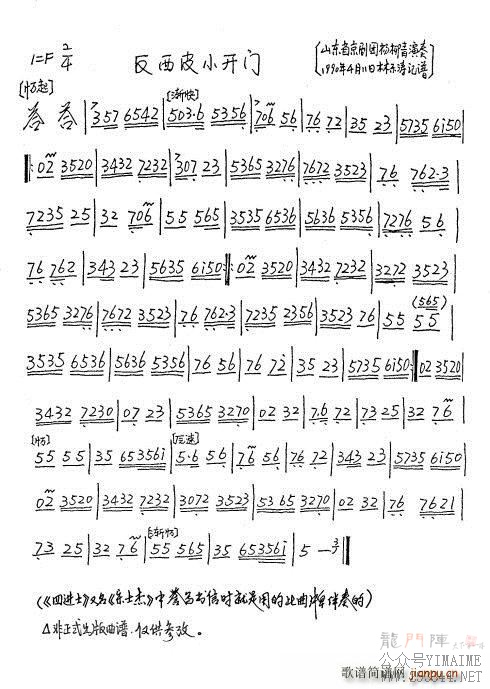 1=F 2/4
反西皮小开门
(山东省京剧团杨柳青演奏
1990年4月11日林东涛记谱)
[慢起] [渐快]
答 答 | 357 6542 | 503·6 5356 | 706 56 | 76 72 | 35 23 | 5735 6i50 |
‖: 02 3520 | 3432 7232 | 307 23 | 5365 3276 | 7672 3523 | 76 762·3 |
7235 25 | 32 706 | 55 565 | 3535 6536 | 5636 5356 | 7276 56 |
76 762 | 343 23 | 5635 6i50 :‖: 02 3520 | 3432 7232 | 3272 3523 |
(565)
5365 3276 | 7672 3523 | 76 762·3 | 7235 2356 | 3523 76 | 55 55 |
3535 6536 | 5636 5356 | 76 56 | 76 72 | 35 23 | 5735 6i50 :‖ 02 3520 |
3432 7230 | 07 23 | 5365 3270 | 02 32 | 76 72 | 73 25 | 32 76 |
[慢] [原速]
55 55 | 35 65356i | 5·6 56 | 76 56 | 76 72 | 343 23 | 5735 6i50 |
02 3520 | 3432 7232 | 3072 3523 | 5365 3270 | 02 32 | 76 7621 |
[渐慢]
73 25 | 32 76 | 55 565 | 35 65356i | 5 — ‖
△非正式出版曲谱。仅供参改。
龍門陣
公众号YIMAIME
歌谱简谱网 jianpu.cn